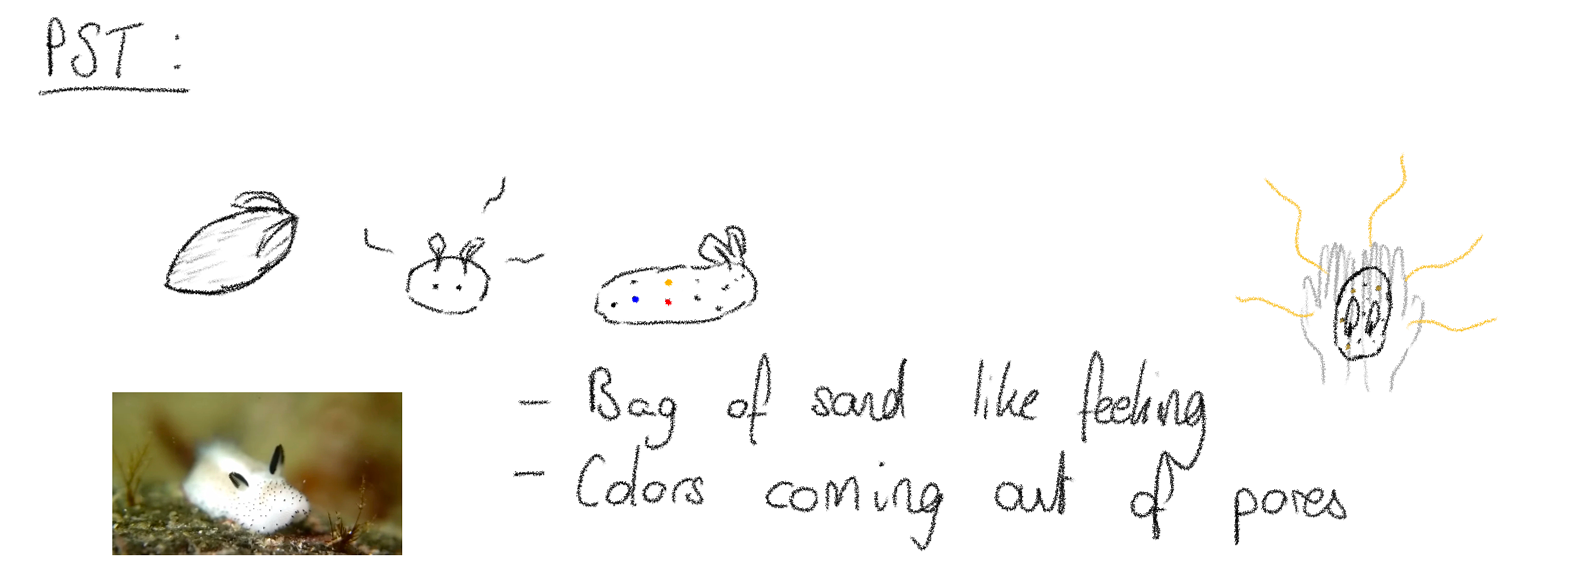 PST :
- Bag of sand like feeling
- Colors coming out of pores